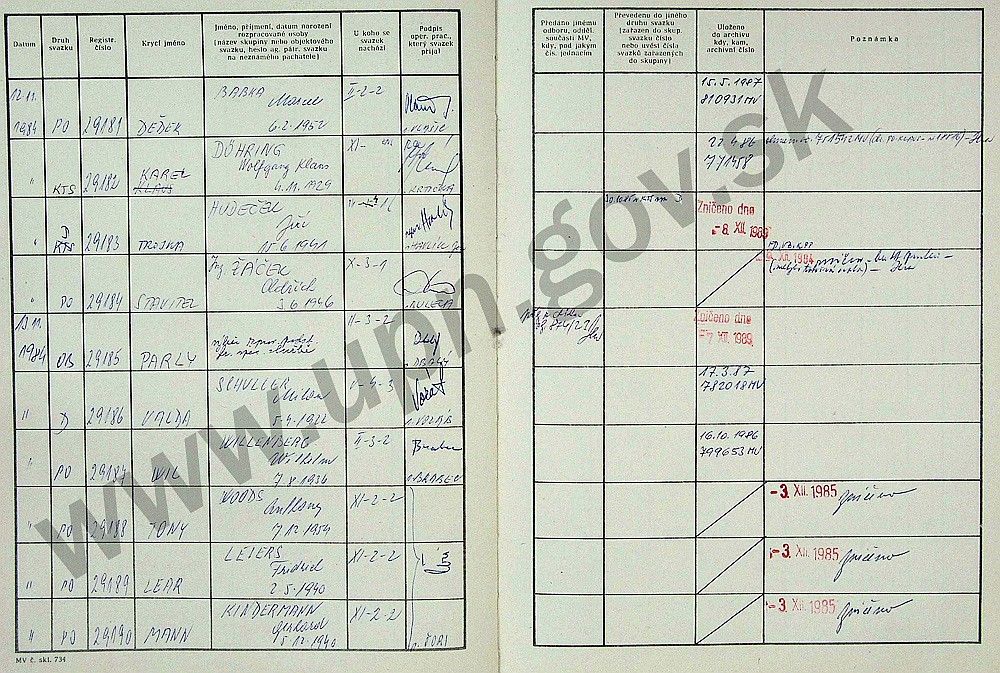 Datum
Druh svazku
Registr. číslo
Krycí jméno
Jméno, příjmení, datum narození
rozpracované osoby
(název skupiny nebo objektového
svazku, heslo ag. pátr. svazku
na neznámého pachatele)
U koho se
svazek
nachází
Podpis
oper. prac.,
který svazek
přijal
Předáno jinému
odboru, odděl.
součásti MV,
kdy, pod jakým
čís. jednacím
Převedeno do jiného
druhu svazku
(zařazen do skup.
svazku číslo
nebo uvést čísla
svazků zařazených
do skupiny)
Uloženo
do archivu
kdy, kam,
archivní číslo
Poznámka
12.11. BABKA II-2-2 15.5.1987
Marcel 810931 MV
1984 PO 29181 DEDEK 6.2.1952
DÖHRING XI- 22.4.86
KAREL Wolfgang Klaus 771458
" KTS 29182 KLAUS 4.11.1929 KRTIČKA
HUDEČEK Zničeno dne
D Jiří -8. XII. 1989
" KTS 29183 TROJKA 15.6.1941
Ing. ŽÁČEK X-3-1
Oldřich
" PO 29184 STAVITEL 3.6.1946
13.11. II-3-2 Zničeno dne
-7. XII. 1989
1984 OB 29185 PARLY
SCHULLER II-4-3 17.3.87
Milan 782018 MV
" D 29186 VALDA 5.4.1922
WILLENBERG II-3-2 16.10.1986
Wilhelm 799653 MV
" PO 29187 WIL 7.8.1936 BRABEC
WOODS XI-2-2 -3. XII. 1985 zničeno
Anthony
" PO 29188 TONY 7.12.1954
LEIERS XI-2-2 -3. XII. 1985 zničeno
Fridrich
" PO 29189 LEAR 2.5.1940
KINDERMANN XI-2-2 -3. XII. 1985 zničeno
Gerhard
" PO 29190 MANN 5.12.1940
MV č. skl. 734
www.upn.gov.sk